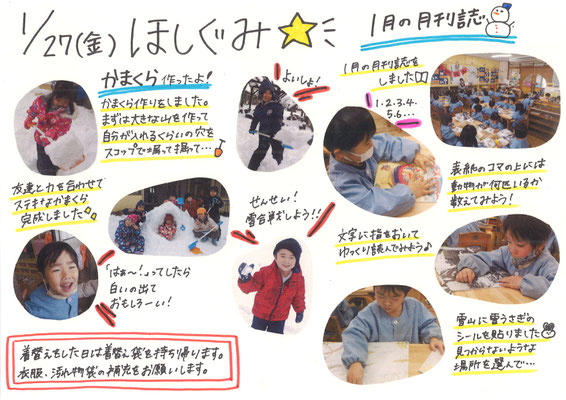 1/27(金) ほしぐみ
かまくら 作ったよ!
かまくら作りをしました。
まずは大きな山を作って
自分が入れるくらいの穴を
スコップで掘って掘って…
友達と力を合わせて
ステキなかまくら
完成しました
「はぁ〜!」ってしたら
白いの出て
おもしろーい!
よいしょ!
せんせい!
雪合戦しよう!!
1月の月刊誌
1月の月刊誌を
しました
1.2.3.4.
5.6…
表紙のコマの上には
動物が何匹いるか
数えてみよう!
文字に指をおいて
ゆっくり読んでみよう♪
雪山に雪うさぎの
シールを貼りました
見つからないような
場所を選んで…
着替えをした日は着替え袋を持ち帰ります。
衣服、汚れ物袋の補充をお願いします。